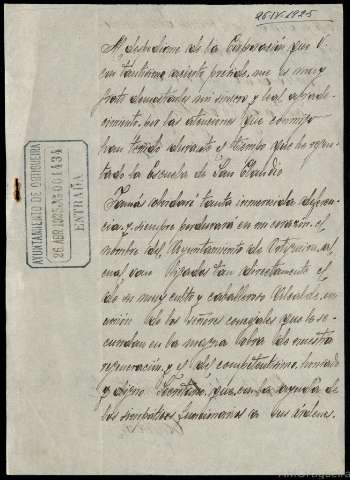 26-IV-1925
Al despedirme de la Corporación que V.
con tantísimo acierto preside, me es muy
grato demostrarles mi sincero y leal agrade-
cimiento, por las atenciones que conmigo
han tenido durante el tiempo que he regen-
tado la Escuela de San Claudio.
Jamás olvidaré tanta inmerecida deferen-
cia, y siempre perdurará en mi corazón, el
nombre del Ayuntamiento de Ortigueira, al
cual van ligados tan directamente el
de su muy culto y caballeroso Alcalde, en
unión de los Señores concejales que le se-
cundan en la magna labra de nuestra
regeneración, y el del competentísimo, honrado
y digno Secretario, que con la ayuda de
los funcionarios a sus órdenes.
AYUNTAMIENTO DE ORTIGUEIRA
26.ABR.1925 001434
ENTRADA